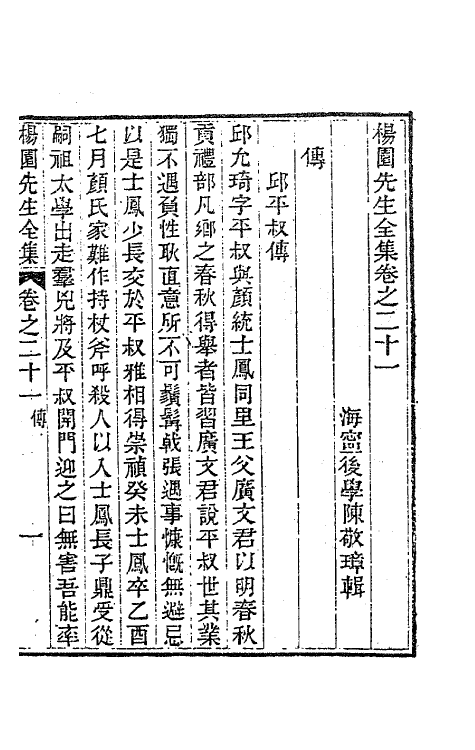 楊園先生全集卷之二十一
海寧後學陳敬璋輯
傳
邱平叔傳
邱允琦字平叔與顏統士鳳同里王父廣文君以明春秋
貢禮部凡鄉之春秋得舉者皆習廣文君說平叔世其業
獨不遇負性耿直意所不可鬚髯戟張遇事慷慨無避忌
以是士鳳少長交於平叔雅相得崇禎癸未士鳳卒乙酉
七月顏氏家難作持杖斧呼殺人以入士鳳長子鼎受從
嗣祖太學出走羣兇將及平叔開門迎之曰無害吾能率
楊園先生全集 卷之二十一 傳 一